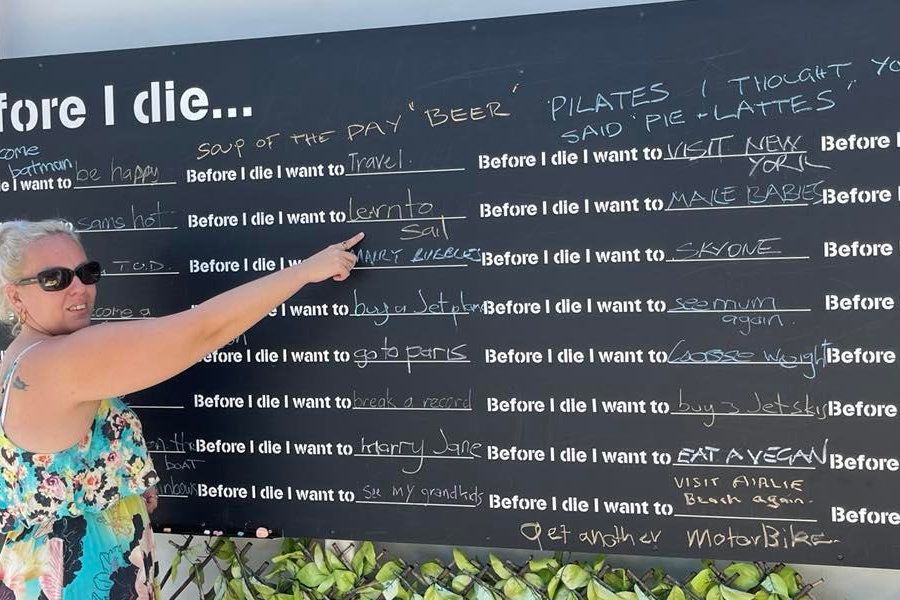 fore I die...
SOUP OF THE DAY "BEER"
PILATES I THOUGHT YO
SAID "PIE + LATTES"
come
batman
ie I want to be happy
Before I die I want to Travel.
Before I die I want to VISIT NEW
YORK
Before I
sams hot
Before I die I want to learn to
sail
Before I die I want to MAKE BABIES
Before I
T.O.D.
Before I die I w
MARRY BUBBLES
Before I die I want to SKYDNE
Before
come a
I want to buy a Jet plane
Before I die I want to see mum
again.
Before
efore I die I want to go to paris
Before I die I want to Loosse weight
Before I
Before I die I want to break a record
Before I die I want to buy 3 Jetskis
Before I
on the
BOAT
Before I die I want to Marry Jane
Before I die I want to EAT A VEGAN
Before
inbows
Before I die I want to see my grandkids
Before I die I want to
VISIT AIRLIE
Beach again.
Before
Get another MotorBike.